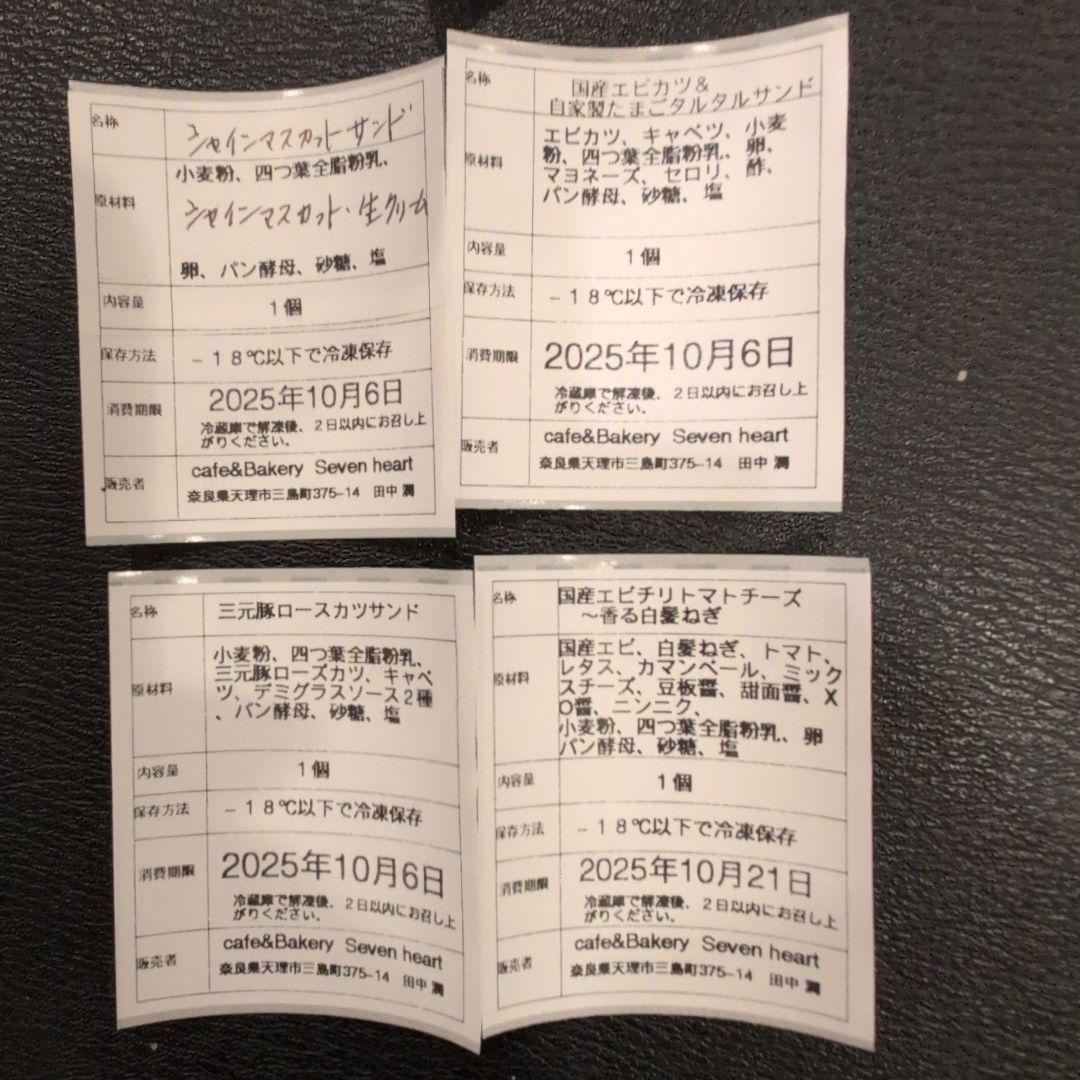 名称
シャインマスカットサンド
小麦粉、四つ葉全脂粉乳、
原材料
シャインマスカット・生クリーム
卵、パン酵母、砂糖、塩
内容量
1個
保存方法
－１８℃以下で冷凍保存
消費期限
2025年10月6日
冷蔵庫で解凍後、２日以内にお召し上
がりください。
販売者
cafe&Bakery Seven heart
奈良県天理市三島町375−14 田中 潤
名称
国産エビカツ&
自家製たまごタルタルサンド
原材料
エビカツ、キャベツ、小麦
粉、四つ葉全脂粉乳、卵、
マヨネーズ、セロリ、酢、
パン酵母、砂糖、塩
内容量
1個
保存方法
－１８℃以下で冷凍保存
消費期限
2025年10月6日
冷蔵庫で解凍後、２日以内にお召し上
がりください。
販売者
cafe&Bakery Seven heart
奈良県天理市三島町375−14 田中 潤
名称
三元豚ロースカツサンド
原材料
小麦粉、四つ葉全脂粉乳、
三元豚ローズカツ、キャベ
ツ、デミグラスソース2種
、パン酵母、砂糖、塩
内容量
1個
保存方法
－１８℃以下で冷凍保存
消費期限
2025年10月6日
冷蔵庫で解凍後、２日以内にお召し上
がりください。
販売者
cafe&Bakery Seven heart
奈良県天理市三島町375−14 田中 潤
名称
国産エビチリトマトチーズ
～香る白髪ねぎ
原材料
国産エビ、白髪ねぎ、トマト、
レタス、カマンベール、ミック
スチーズ、豆板醤、甜面醤、X
O醤、ニンニク、
小麦粉、四つ葉全脂粉乳、卵
パン酵母、砂糖、塩
内容量
1個
保存方法
－１８℃以下で冷凍保存
消費期限
2025年10月21日
冷蔵庫で解凍後、２日以内にお召し上
がりください。
販売者
cafe&Bakery Seven heart
奈良県天理市三島町375−14 田中 潤